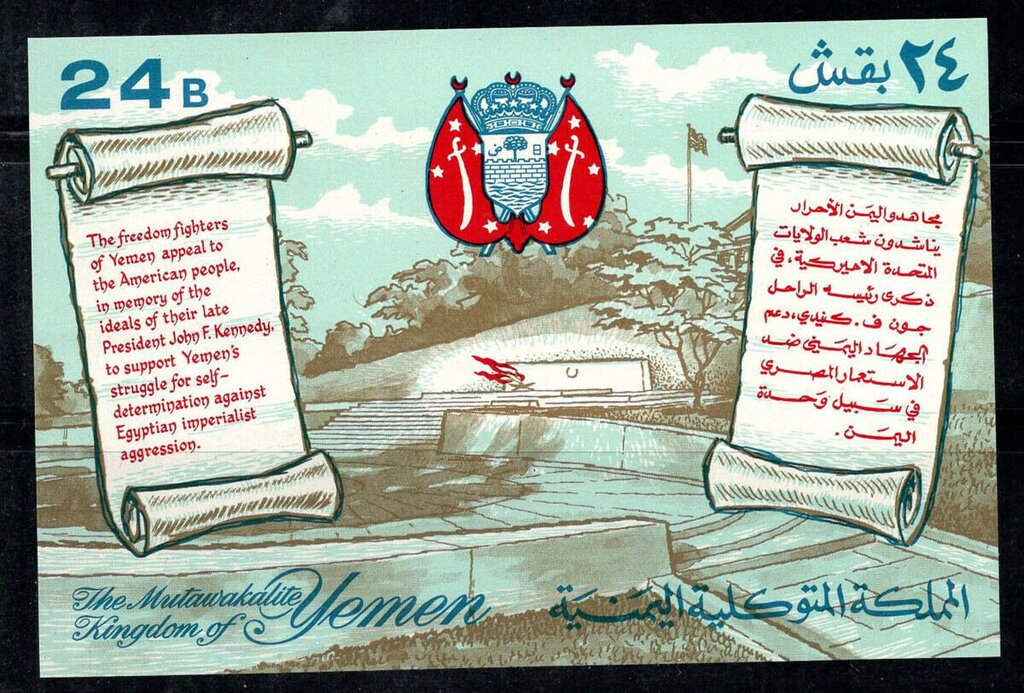 24 B
٢٤ بقش
The freedom fighters
of Yemen appeal to
the American people,
in memory of the
ideals of their late
President John F. Kennedy,
to support Yemen's
struggle for self-
determination against
Egyptian imperialist
aggression.
مجاهدو اليمن الأحرار
يناشدون شعب الولايات
المتحدة الاميركية، في
ذكرى رئيسه الراحل
جون ف. كنيدي، دعم
الجهاد اليمني ضد
الاستعمار المصري
في سبيل وحدة
اليمن.
The Mutawakalite
Kingdom of Yemen
المملكة المتوكلية اليمنية